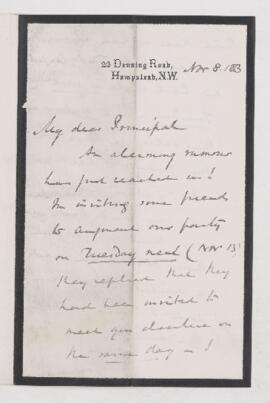 22 Denning Road,
Hampstead, N.W.
Nov 8. 1883
My dear Principal
An alarming rumour
has just reached us!
In inviting some friends
to augment our party
on Tuesday next (Nov 13)
they replied that they
had been invited to
meet you elsewhere on
the same day !